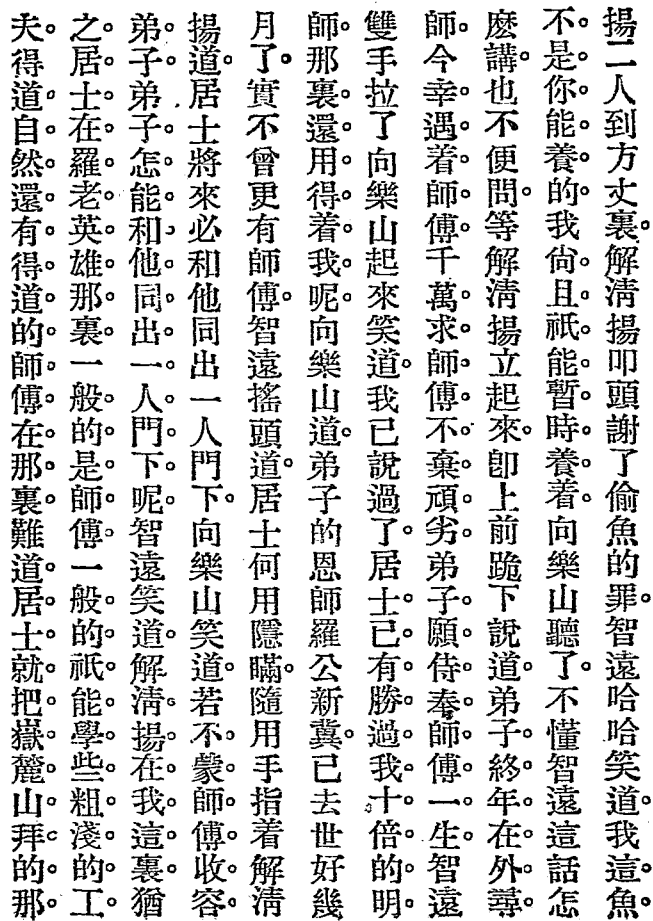 揚二人到方丈裏。解淸揚叩頭謝了偷魚的罪。智遠哈哈笑道。我這魚。
不是。你能養的。我尙且。祇能暫時養着。向樂山聽了。不懂智遠這話怎
麽講。也不便問。等解淸揚立起來。卽上前跪下說道。弟子。終年。在外。尋。
師。今幸遇着師傅。千萬。求師傅。不棄頑劣。弟子。願侍奉師傅。一生。智遠
雙手拉了向樂山起來笑道。我已說過了。居士。已有勝過我十倍的。明。
師。那裏還用得着我呢。向樂山道。弟子的恩師羅公新冀。已去世好幾
月了。實不曾更有師傅。智遠搖頭道。居士何用隱瞞。隨用手指着解淸
揚道。居士將來必和他同出一人門下。向樂山笑道。若不蒙師傅。收容。
弟子。弟子。怎能和他。同出。一人。門下呢。智遠笑道。解淸揚在我。這裏。猶
之。居士。在羅老英雄那裏。一般的。是師傅。一般的。祇能學些粗淺的。工。
夫。得道。自然。還有得道的師傅。在那裏。難道。居士。就把嶽麓山拜的。那。